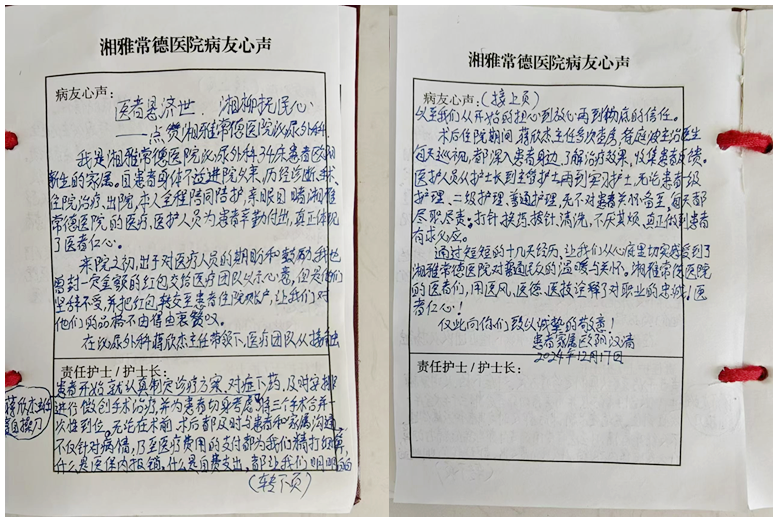 湘雅常德医院病友心声
病友心声：
医者悬济世 湘柳抚民心
——点赞湘雅常德医院泌尿外科
我是湘雅常德医院泌尿外科34床患者欧阳
新生的家属，自患者身体不适进院以来，历经诊断、手术、
住院治疗、出院，本人全程陪同陪护，亲眼目睹湘雅
常德医院的医疗、医护人员为患者辛勤付出，真正体现
了医者仁心。
来院之初，出于对医疗人员的期盼和鼓励，我也
曾封一定金额的红包交给医疗团队以示心意，但是他们
坚持不受，并把红包转交至患者住院账户，让我们对
他们的品格不由得由衷赞叹。
在泌尿外科蒋欣杰主任带领下，医疗团队从接触
责任护士/护士长：
患者开始就认真制定治疗方案，对症下药，及时安排
进行微创手术治疗，并为患者切身考虑，将三个手术合并一
次性到位。无论在术前、术后都及时与患者和家属沟通，
不仅针对病情，乃至医疗费用的支付都为我们精打细算，
什么是医保内报销，什么是自费支出，都让我们明明白白
（转下页）
蒋欣杰主任
亲自操刀
湘雅常德医院病友心声
病友心声：（接上页）
以至我们从开始的担心到放心再到彻底的信任。
术后住院期间，蒋欣杰主任多次查房，待庭独主治医生
每天巡视，都深入患者身边，了解治疗效果，收集患者反馈。
医护人员从护士长到主管护士再到实习护士，无论患者一级
护理、二级护理、普通护理，无不对患者关怀备至，每天都
尽职尽责。打针、换药、拔针、清洗，不厌其烦，真正做到患者
有求必应。
通过短短的十几天经历，让我们从心底里切实感受到了
湘雅常德医院对普通民众的温暖与关怀。湘雅常德医院
的医者们，用医风、医德、医技诠释了对职业的忠诚！医
者仁心！
仅此向你们致以诚挚的敬意！
患者家属欧阳汉满
2024年12月17日
责任护士/护士长：